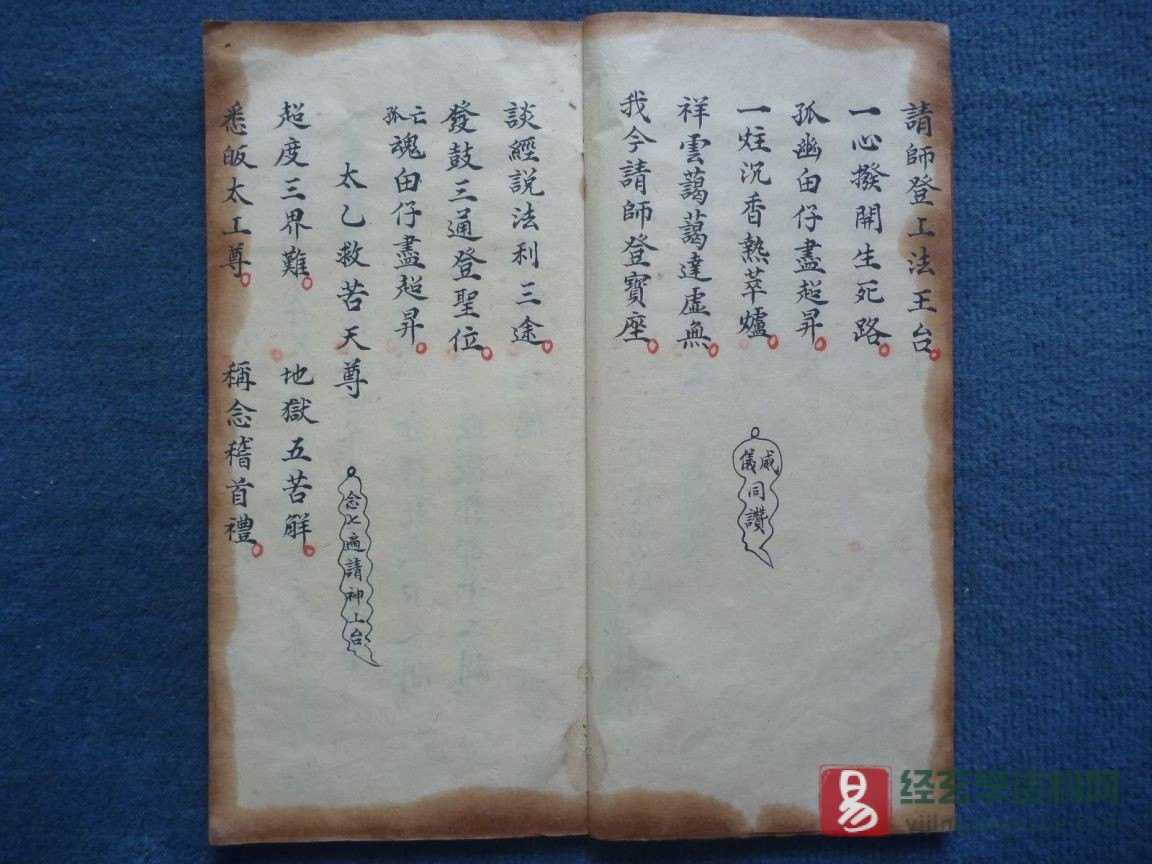 請師登上法王台
一心撥開生死路
孤幽由仔盡超昇
一炷沉香熱萃爐
祥雲藹藹達虛無
威儀同讚
我今請師登寶座
談經説法利三途
發鼓三通登聖位
亡孤魂由仔盡超昇
太乙救苦天尊
念七遍請神上台
超度三界難 地獄五苦解
悉皈太上尊 稱念稽首禮
易 经玄学资料网